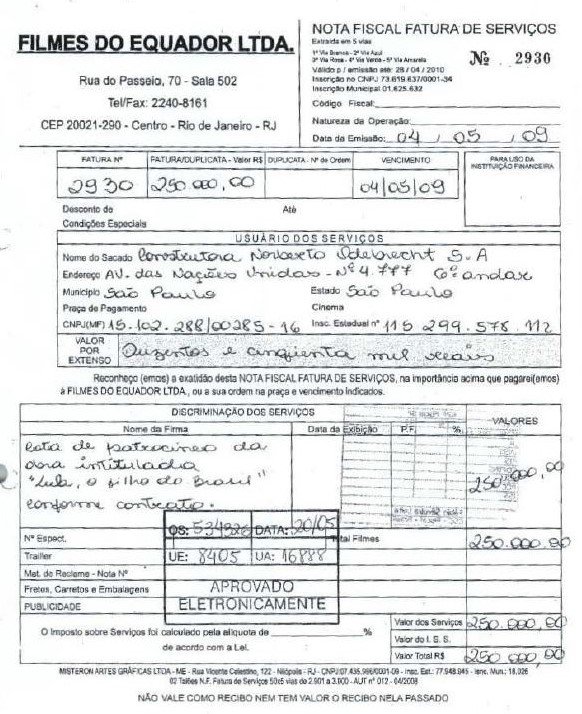 FILMES DO EQUADOR LTDA.
Rua do Passeio, 70 - Sala 502
Tel/Fax: 2240-8161
CEP 20021-290 - Centro - Rio de Janeiro - RJ
NOTA FISCAL FATURA DE SERVIÇOS
Extraída em 5 vias
1ª Via Branca - 2ª Via Azul
3ª Via Rosa - 4ª Via Verde - 5ª Via Amarela
Válido p / emissão até: 28 / 04 / 2010
Inscrição no CNPJ 73.619.637/0001-34
Inscrição Municipal 01.625.632
Nº 2930
Código Fiscal:
Natureza da Operação:
Data da Emissão: 04 / 05 / 09
FATURA Nº FATURA/DUPLICATA - Valor R$ DUPLICATA - Nº de Ordem VENCIMENTO PARA USO DA INSTITUIÇÃO FINANCEIRA
2930 250.000,00 04/05/09
Desconto de Até
Condições Especiais
USUÁRIO DOS SERVIÇOS
Nome do Sacado Construtora Norberto Odebrecht S.A
Endereço AV. das Nações Unidas - Nº 4.777 6º andar
Município São Paulo Estado São Paulo
Praça de Pagamento Cinema
CNPJ(MF) 15.102.288/00285-16 Insc. Estadual nº 115 299.578.112
VALOR POR EXTENSO Duzentos e cinqüenta mil reais
Reconheço (emos) a exatidão desta NOTA FISCAL FATURA DE SERVIÇOS, na importância acima que pagarei(emos)
à FILMES DO EQUADOR LTDA , ou a sua ordem na praça e vencimento indicados.
DISCRIMINAÇÃO DOS SERVIÇOS
Nome da Firma Data da Exibição P.F. % VALORES
Cota de patrocínio da
obra intitulada
"Lula, o filho do Brasil" 250.000,00
conforme contrato.
OS: 534928 DATA: 20/05
Nº Espect. Total Filmes 250.000.00
Trailler UE: 8405 UA: 16888
Mat. de Reclame - Nota Nº
Fretes, Carretos e Embalagens APROVADO
PUBLICIDADE ELETRONICAMENTE
O Imposto sobre Serviços foi calculado pela alíquota de %
de acordo com a Lei.
Valor dos Serviços 250.000,00
Valor do I. S. S.
Valor Total R$ 250.000,00
MISTERON ARTES GRÁFICAS LTDA - ME - Rua Vicente Celestino, 122 - Nilópolis - RJ - CNPJ:07.435.986/0001-09 - Insc. Est.: 77.948.945 - Insc. Mun.: 18.026
02 Talões N.F. Fatura de Serviços 50x5 vias de 2.901 a 3.000 - AUT nº 012 - 04/2008
NÃO VALE COMO RECIBO NEM TEM VALOR O RECIBO NELA PASSADO